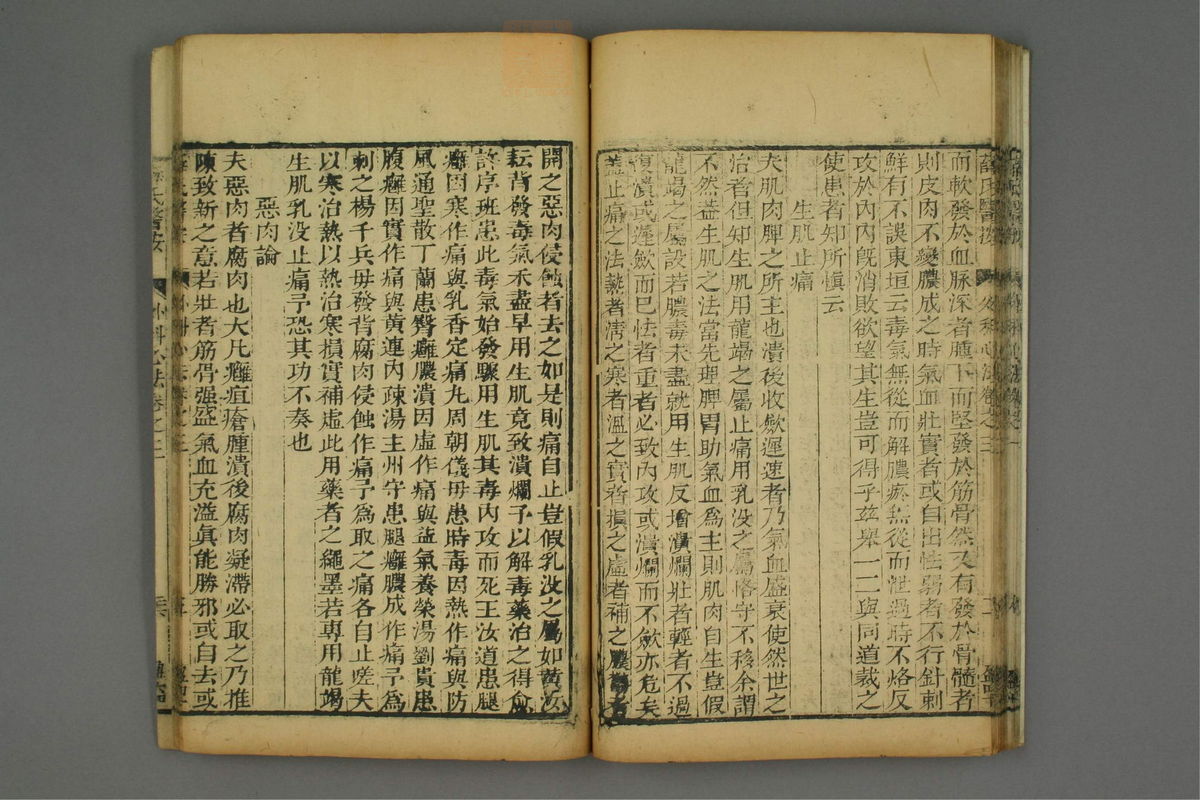 而軟發於血脉深者腫下而堅發於筋骨然又有發於骨髓者
則皮肉不變膿成之時氣血壯實者或自出怯弱者不行針刺
鮮有不誤東垣云毒氣無從而解膿瘀無從而泄過時不烙反
攻於內內既消敗欲望其生豈可得乎茲舉一二與同道裁之
使患者知所慎云
生肌止痛
夫肌肉脾之所主也潰後收斂遲速者乃氣血盛衰使然世之
治者但知生肌用龍竭之屬止痛用乳没之屬胳守不移余謂
不然葢生肌之法當先理脾胃助氣血為主則肌肉自生豈假
龍竭之屬設若膿毒未盡就用生肌反增潰爛壯者輕者不過
復潰或遲斂而巳怯者重者必致內攻或潰爛而不斂亦危矣
葢止痛之法熱者清之寒者溫之實者損之虛者補之膿鬱者
開之惡肉侵蝕者去之如是則痛自止豈假乳没之屬如黃汝
耘背發毒氣未盡早用生肌竟致潰爛予以解毒藥治之得愈
許序班患此毒氣始發驟用生肌其毒內攻而死王汝道患腿
癰因寒作痛與乳香定痛丸周朝儀毋患時毒因熱作痛與防
風通聖散丁蘭患臀癰膿潰因虛作痛與益氣養榮湯劉貢患
腹癰因實作痛與黃連內疎湯主州守患腿癰膿成作痛予為
刺之楊千兵毋發背腐肉侵蝕作痛予為取之痛各自止嗟夫
以寒治熱以熱治寒損實補虛此用藥者之繩墨若專用龍竭
生肌乳没止痛予恐其功不奏也
惡肉論
夫惡肉者腐肉也大凡癰疽瘡腫潰後腐肉凝滯必取之乃推
陳致新之意若壯者筋骨強盛氣血充溢真能勝邪或自去或
薛氏醫按
外科心法卷之三